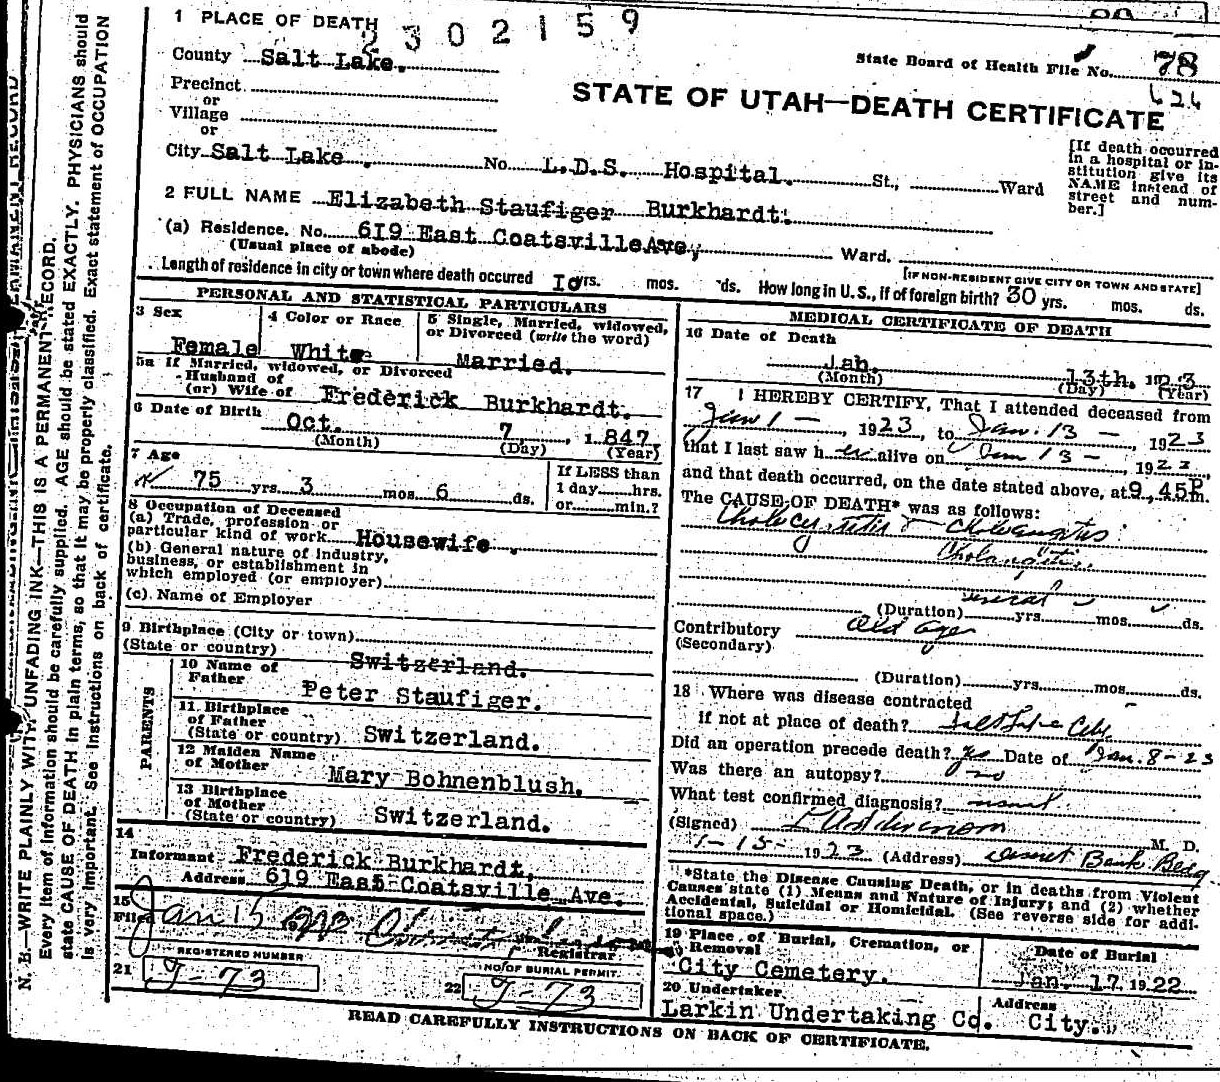 1 PLACE OF DEATH
2302159
County Salt Lake.
State Board of Health File No. 78
626
Precinct
or
Village
or
STATE OF UTAH—DEATH CERTIFICATE
City Salt Lake . No. L.D.S. Hospital. St., Ward
[If death occurred
in a hospital or in-
stitution give its
NAME instead of
street and num-
ber.]
2 FULL NAME Elizabeth Staufiger Burkhardt.
(a) Residence. No. 619 East Coatsville Ave, Ward.
(Usual place of abode)
[IF NON-RESIDENT GIVE CITY OR TOWN AND STATE]
Length of residence in city or town where death occured Io yrs. mos. ds. How long in U.S., if of foreign birth? 30 yrs. mos. ds.
PERSONAL AND STATISTICAL PARTICULARS
3 Sex
Female
4 Color or Race
White
5 Single, Married, widowed,
or Divorced (write the word)
Married.
5a If Married, widowed, or Divorced
Husband of
(or) Wife of Frederick Burkhardt.
6 Date of Birth
Oct. 7, 1847.
(Month) (Day) (Year)
7 Age
75 yrs. 3 mos. 6 ds.
If LESS than
1 day hrs.
or min.?
8 Occupation of Deceased
(a) Trade, profession or
particular kind of work Housewife .
(b) General nature of industry,
business, or establishment in
which employed (or employer)
(c) Name of Employer
9 Birthplace (City or town)
(State or country) Switzerland.
PARENTS
10 Name of
Father Peter Staufiger.
11. Birthplace
of Father
(State or country) Switzerland.
12 Maiden Name
of Mother Mary Bohnenblush.
13 Birthplace
of Mother
(State or country) Switzerland.
14
Informant Frederick Burkhardt,
Address 619 East Coatsville Ave.
15
Filed Jan 15
Registrar
REGISTERED NUMBER
21 J-73
NO. OF BURIAL PERMIT.
22 J-73
MEDICAL CERTIFICATE OF DEATH
16 Date of Death
Jan. 13th. 1923
(Month) (Day) (Year)
17 I HEREBY CERTIFY, That I attended deceased from
Jan 1 — , 1923, to Jan. 13 — , 1923
that I last saw her alive on Jan 13 — , 1923,
and that death occurred, on the date stated above, at 9,45P.
The CAUSE OF DEATH* was as follows:
Cholecystitis & Cholangitis
Cholangitis.
several
(Duration) yrs. mos. ds.
Contributory Old Age
(Secondary)
(Duration) yrs. mos. ds.
18 Where was disease contracted
if not at place of death? Salt Lake City.
Did an operation precede death? yes Date of Jan. 8-23
Was there an autopsy? no
What test confirmed diagnosis? usual
(Signed) M. D.
1-15- 1923 (Address) Deseret Bank Bldg
*State the Disease Causing Death, or in deaths from Violent
Causes state (1) Means and Nature of Injury; and (2) whether
Accidental, Suicidal or Homicidal. (See reverse side for addi-
tional space.)
19 Place of Burial, Cremation, or
Removal
City Cemetery.
Date of Burial
Jan. 17, 1922
20 Undertaker
Larkin Undertaking Co.
Address
City.
READ CAREFULLY INSTRUCTIONS ON BACK OF CERTIFICATE.
N. B.—WRITE PLAINLY WITH UNFADING INK—THIS IS A PERMANENT RECORD.
Every item of information should be carefully supplied. AGE should be stated EXACTLY. PHYSICIANS should
state CAUSE OF DEATH in plain terms, so that it may be properly classified. Exact statement of OCCUPATION
is very important. See instructions on back of certificate.